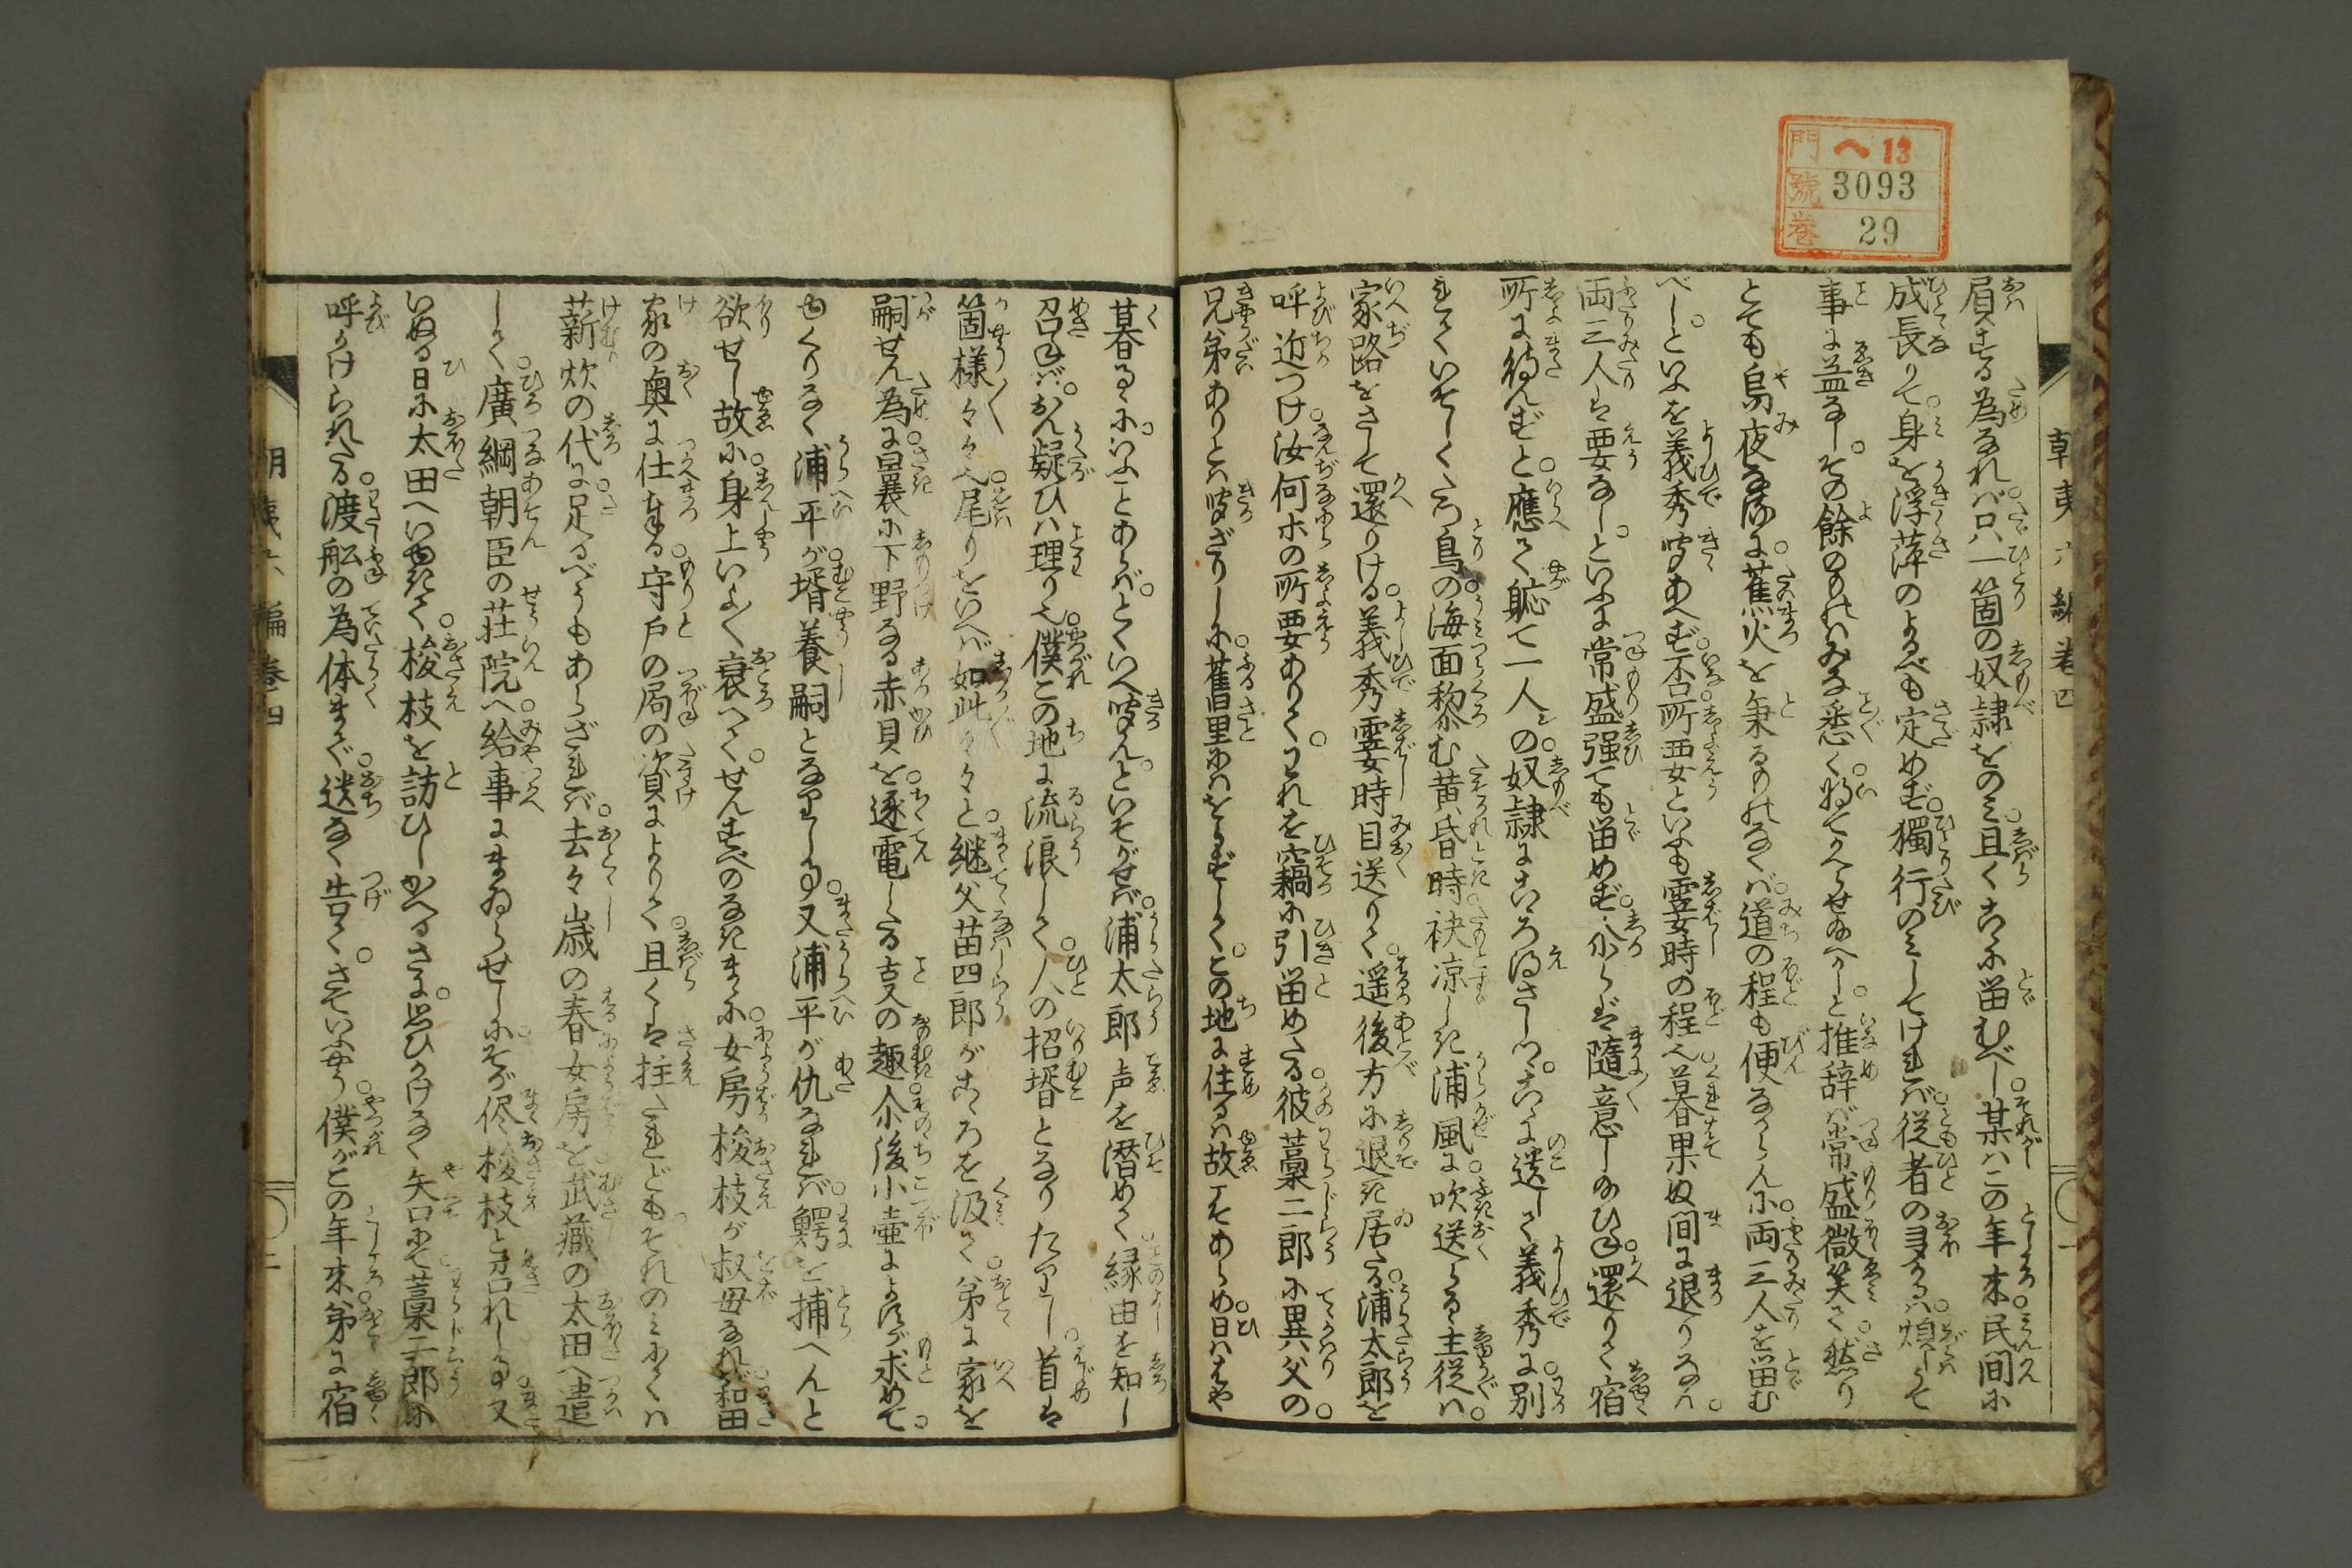 門 へ13
號 3093
巻 29
朝夷六編巻四
屓する為なれバ只一箇の奴隷をのミ且くこゝに畄むべし某ハこの年来民間に
成長りて身を浮萍のよるべも定めず獨行のミしてけれバ従者の多かるハ煩しうて
事に益なしその餘のものハみな悉く將てかへらせ給へかしと推辞バ常盛微笑て然り
とても烏夜なるに蕉火を秉るものなくバ道の程も便なからんに両三人を畄む
べしといふを義秀聞あへず否所要といふも霎時の程也暮果ぬ間に退りなバ
両三人は要なしといふに常盛强ても畄めず尓らば隨意し給ひね還りて宿
所に待んずと應て躮て一人の奴隷にこゝろ得さしつゝこゝに遺して義秀に別
れていそしくたつ鳥の海面黎む黄昏時袂凉しき浦風に吹送らるゝ主従ハ
家路をさして還りける義秀霎時目送りて遥後方に退き居たる浦太郎を
呼近つけ汝何ホの所要ありてわれを竊に引畄めたる彼藁二郎に異父の
兄弟ありとハ聞ざりしに舊里にハをらずしてこの地に住るハ故こそあらめ日ハはや
暮るゝにいふことあらバとくいへ聞んといそがせバ浦太郎声を潜めて縁由を知し
召ねバおん疑ひハ理り也僕この地に流浪して人の招壻となりたりし首は
箇様々々也尾りをいへバ如此々々と継父苗四郎がこゝろを汲て弟に家を
嗣せん為に曩に下野なる赤貝を逐電したる事の趣尓後小壷によすが求めて
ゆくりなく浦平が壻養嗣となりし事又浦平が仇なれバ鰐を捕へんと
欲せし故に身上いよ〳〵衰へてせんすべのなきまゝに女房梭枝が叔母なれバ和田
家の奥に仕まつる守戸の局の資によりて且くは拄たれどもそれのミにてハ
薪炊の代に足るべうもあらざれバ去々歳の春女房を武藏の太田へ遣
して廣綱朝臣の荘院へ給事にまゐらせしにそが侭梭枝と召れし事又
いぬる日に太田へいゆきて梭枝を訪ひしかへるさに思ひかけなく矢口にて藁二郎に
呼かけられたる渡舩の為体まで送なく告てさていふやう僕がこの年来弟に宿
朝夷六編巻四